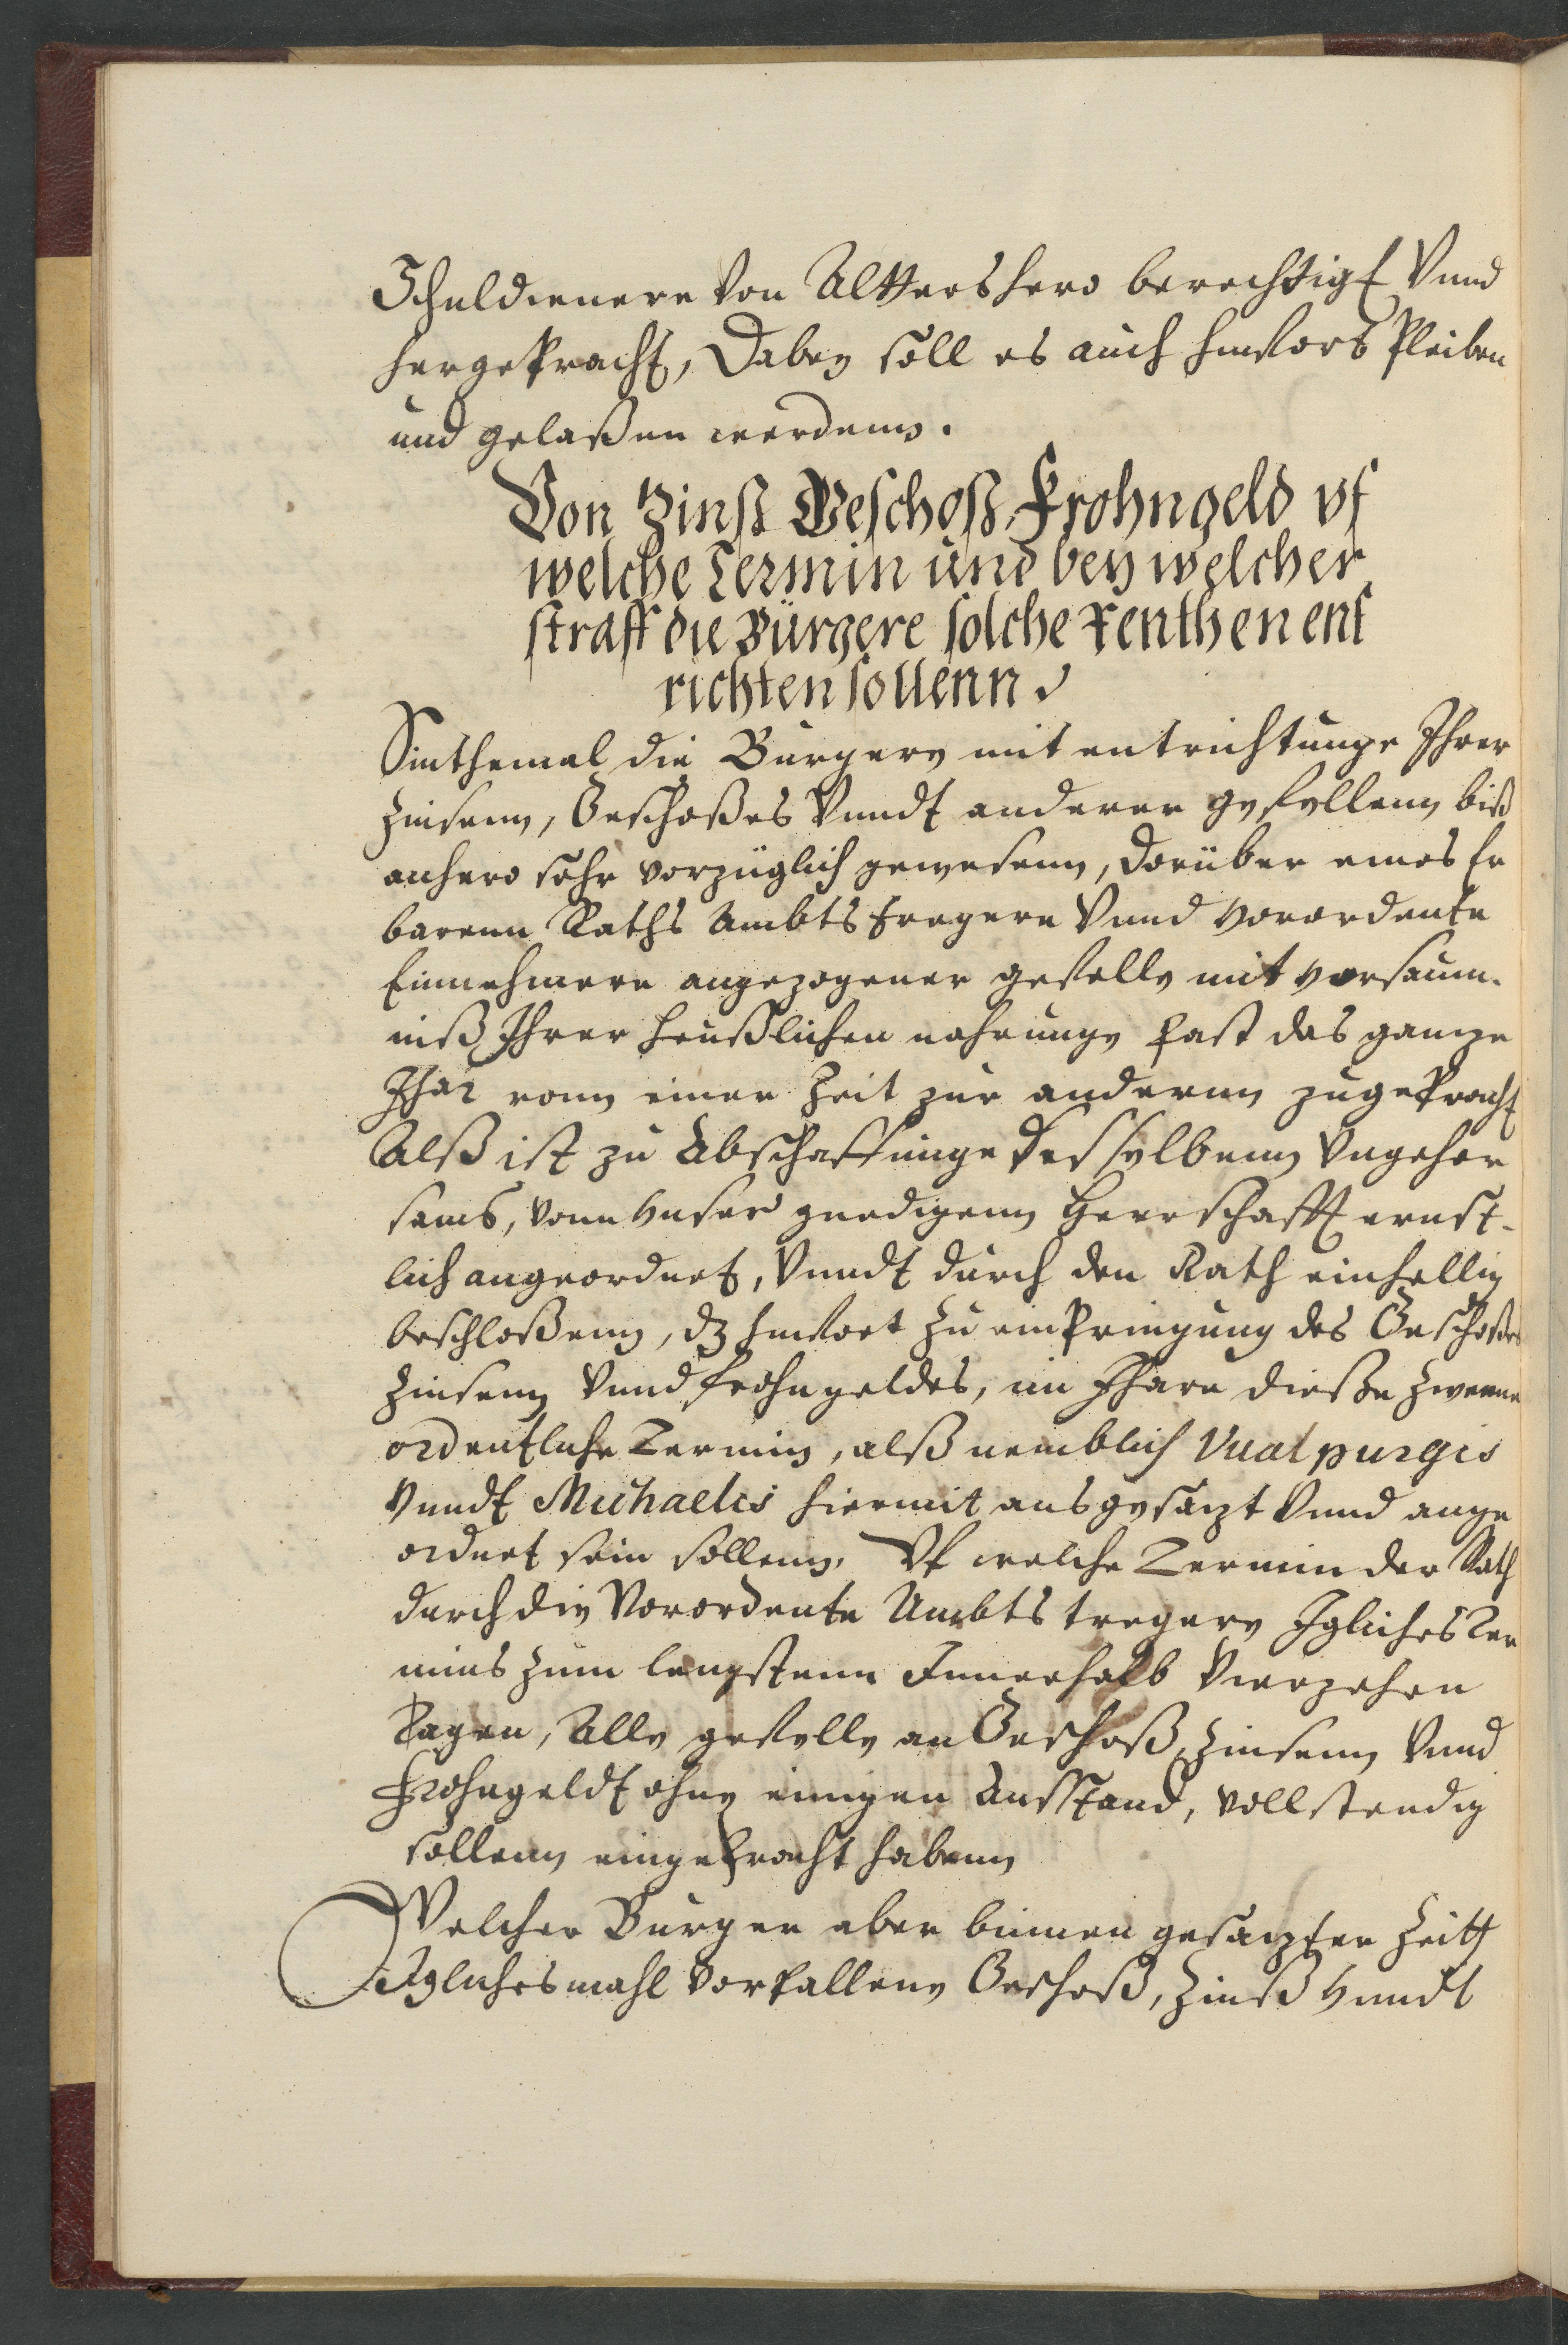 Schuldienere von Alttershero berechtigt Vnnd
hergepracht, Dabey soll es auch hinfort Pleiben
und gelaßen werdenn.
Von Zinß Geschoß, Frohngeld vf
welche Termin und bey welcher
straff die Bürgere solche renthen ent
richten sollenn
Sinthemal die Burgere mit entrichtunge Ihrer
Zinsenn, Geschoßes Vnndt anderer gefellenn biß
anhero sehr vorzüglich gewesenn, Dorüber eines Er
barenn Raths Ambtstregere Vnnd vorordente
Einnehmere angezogener gefelle mit versaum-
niß Ihrer heußlichen nahrunge fast das ganze
Jhar vonn einer Zeit zur anderun zugepracht
Alß ist zu Abschaffunge desselbenn Vngehor
sams, vonn vnser gnedigenn Herrschafft ernst-
lich angeordnet, Vnndt durch den Rath einhellig
beschloßenn, dz hinfort zu einpringung des Geschoßes
Zinsenn Vnnd frohngeldes, im Jhare dieße Zweene
ordentliche Termin, alß nemblich Vualpurgis
Vnndt Michaelis hiermit ausgesazt Vnnd ange
ordnet sein sollenn. Vf welche Termin der Rath
durch die Vorordente Ambtstregere Igliches Ter
mins zum lengstenn Innerhalb Vierzehen
Tagen, Alle gefelle an Geschoß, Zinsenn Vnnd
Frohngeldt ohne einigen Ausstand, vollstendig
sollenn eingebracht habenn
Welcher Burger aber binnen gesazter Zeitt
Iglichesmahl vorfallene Geschoß, Zinß Vnndt